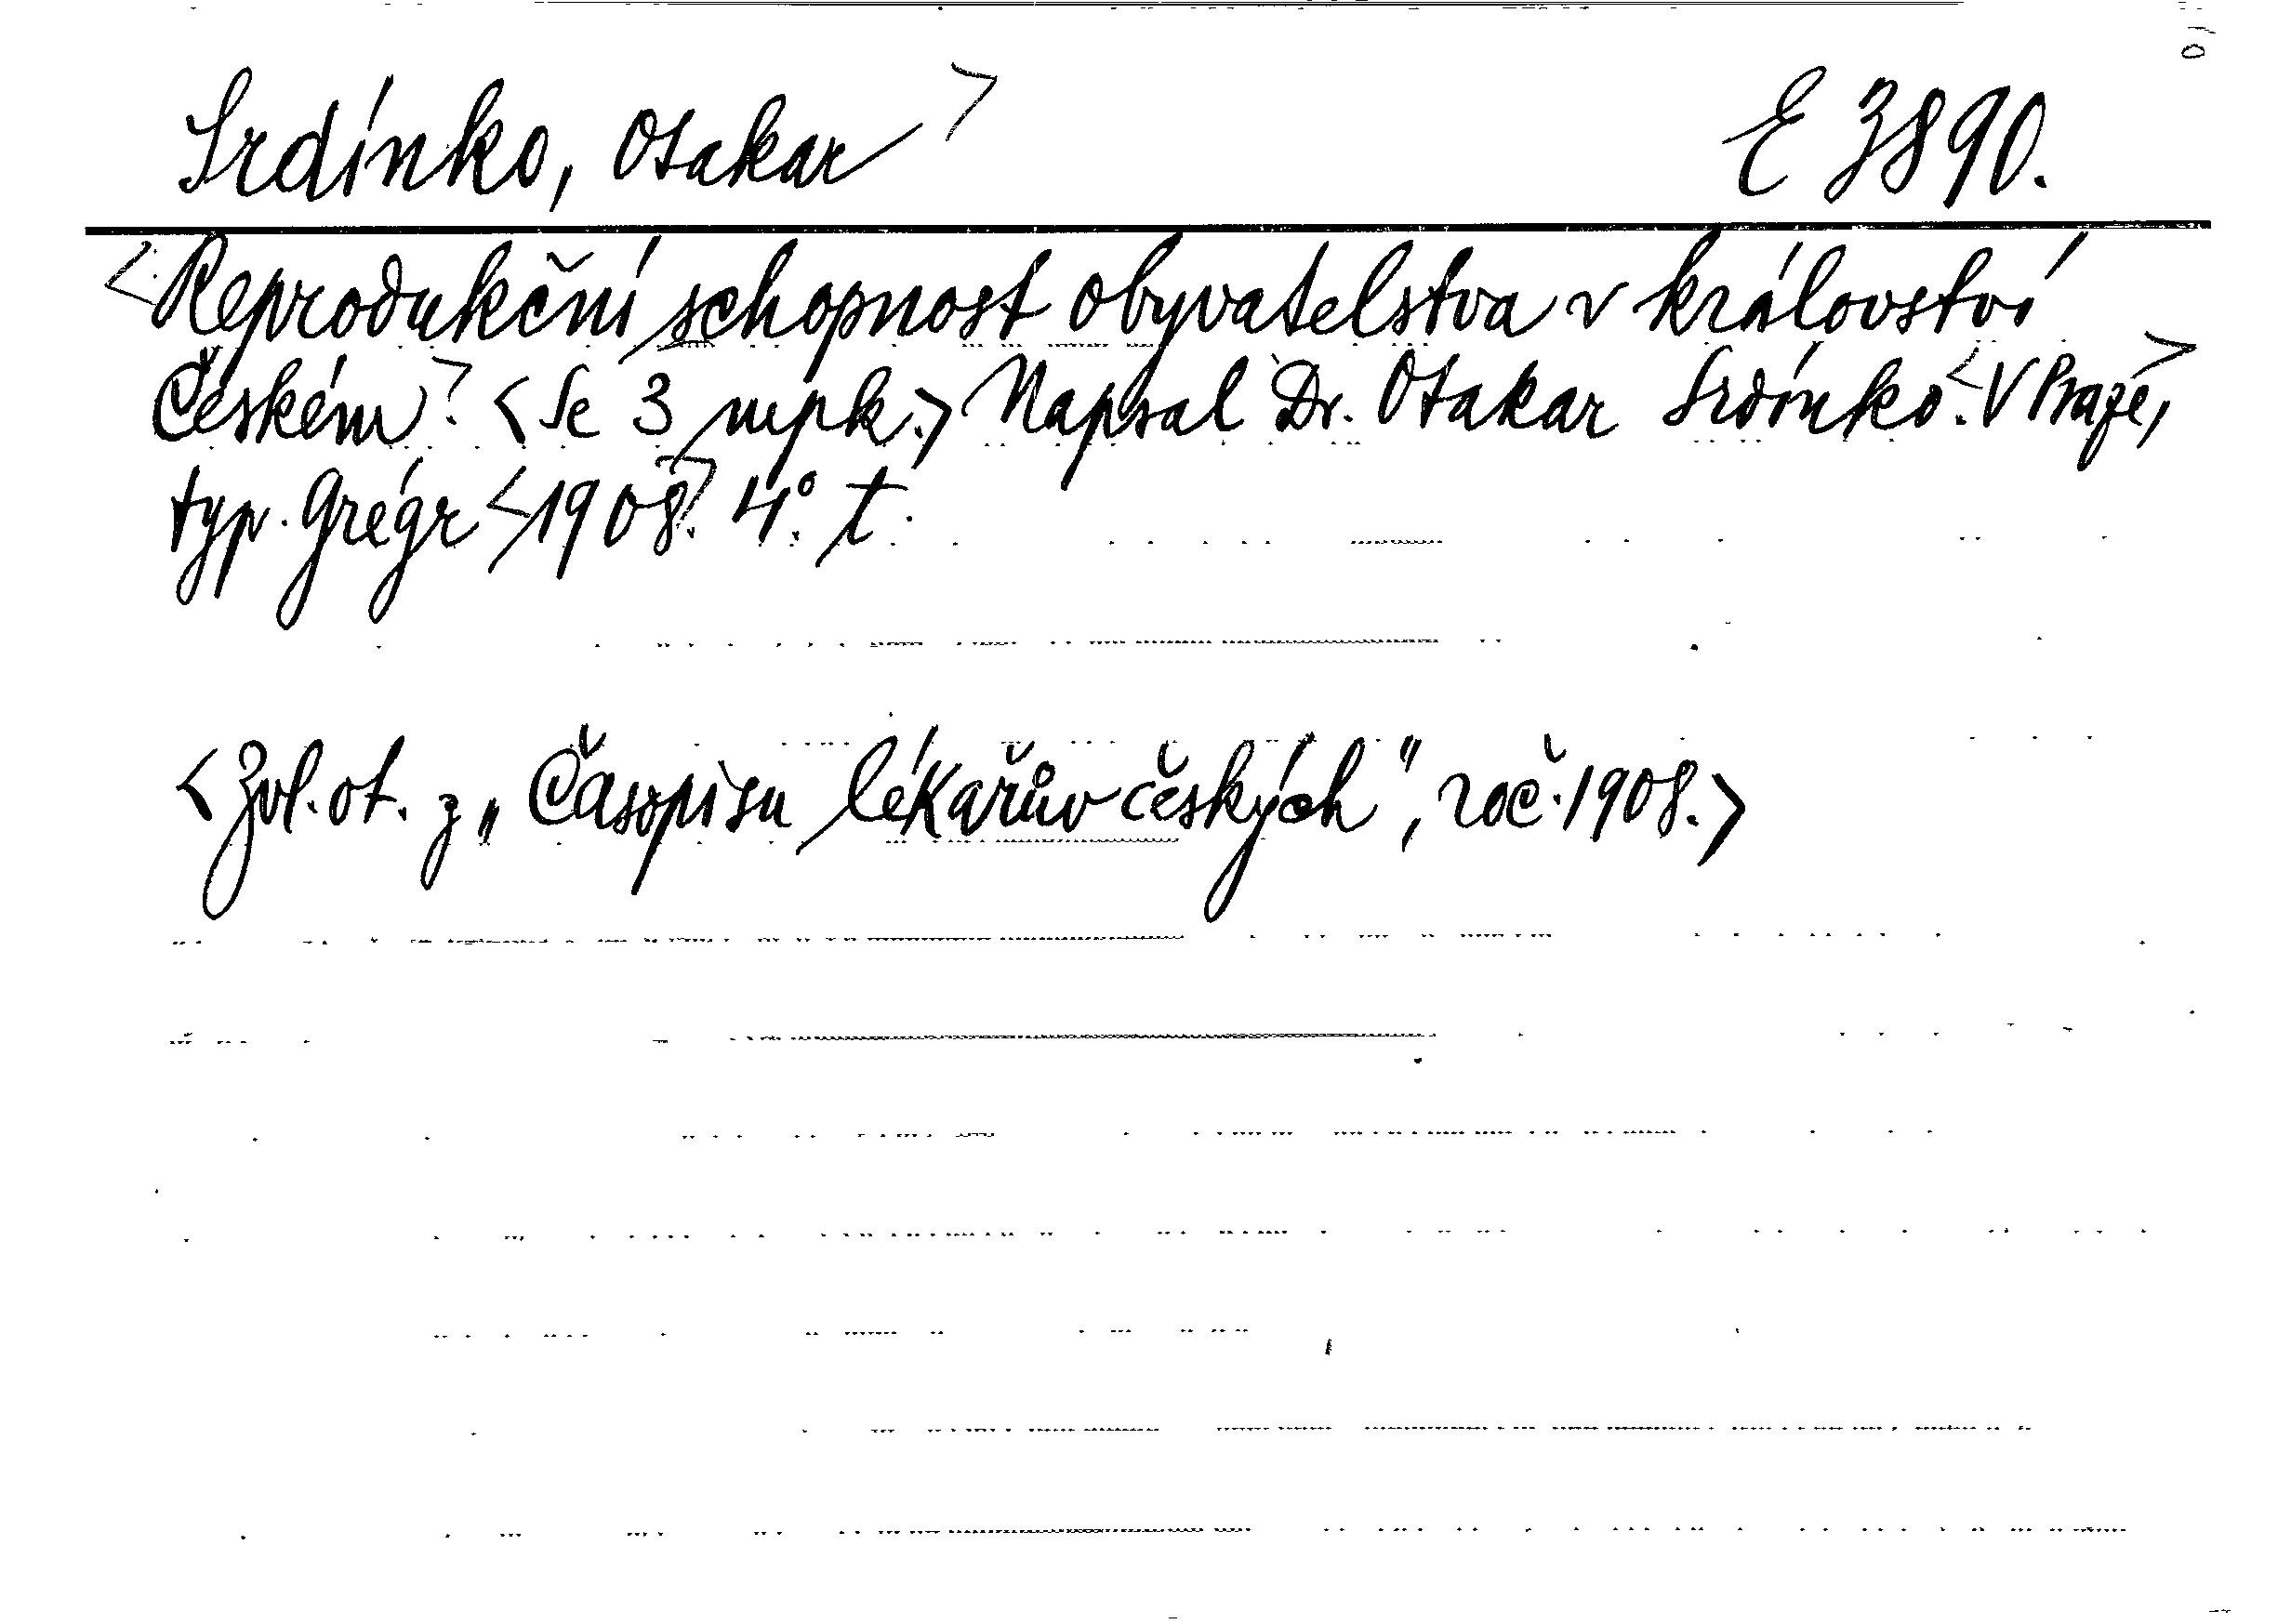 Srdínko, Otakar> E 3890.
<Reprodukční schopnost obyvatelstva v království
Českém.> <Se 3 mpk.> Napsal Dr. Otakar Srdínko.<V Praze,>
typ. Grégr <1908.> 4° t.
<Zvl. ot. z „Časopisu lékařův českých", roč. 1908.>